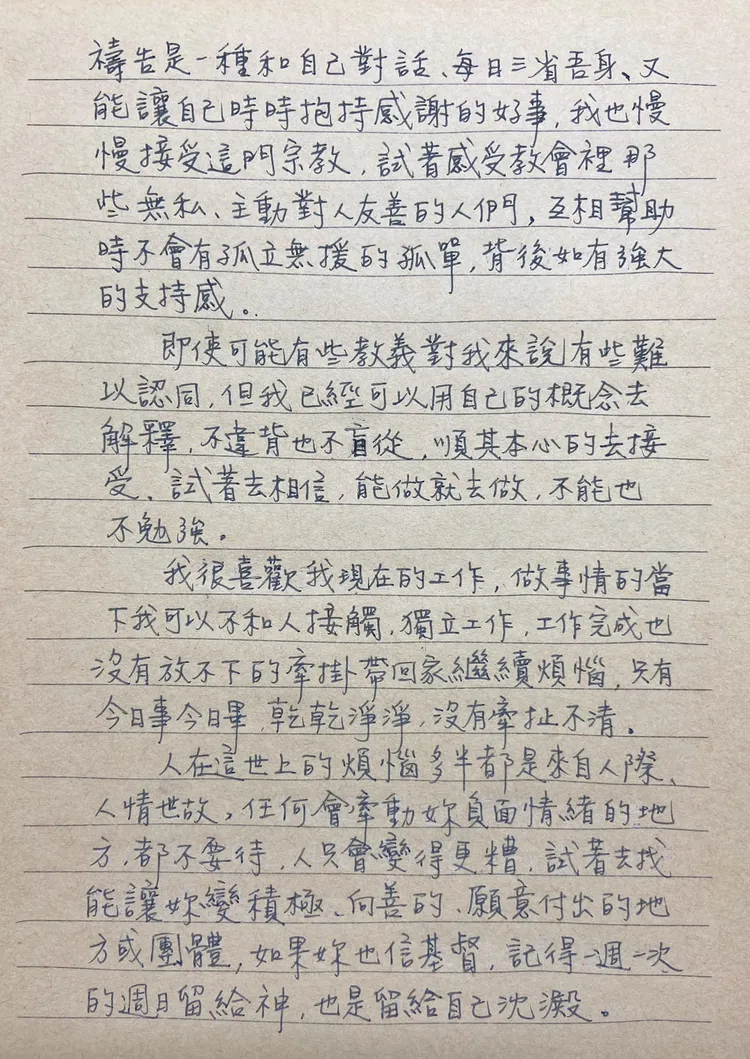 禱告是一種和自己對話、每日三省吾身、又
能讓自己時時抱持感謝的好事,我也慢
慢接受這門宗教,試著感受教會裡那
些無私、主動對人友善的人們,互相幫助
時不會有孤立無援的孤單,背後如有強大
的支持感。
即使可能有些教義對我來說有些難
以認同,但我已經可以用自己的概念去
解釋,不違背也不盲從,順其本心的去接
受、試著去相信,能做就去做,不能也
不勉強。
我很喜歡我現在的工作,做事情的當
下我可以不和人接觸,獨立工作,工作完成也
沒有放不下的牽掛帶回家繼續煩惱,只有
今日事今日畢,乾乾淨淨,沒有牽扯不清。
人在這世上的煩惱多半都是來自人際、
人情世故,任何會牽動妳負面情緒的地
方,都不要待,人只會變得更糟,試著去找
能讓妳變積極、向善的、願意付出的地
方或團體,如果妳也信基督,記得一週一次
的週日留給神,也是留給自己沈澱。